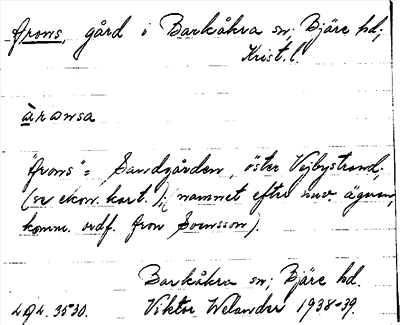 Arons, gård i Barkåkra sn; Bjäre hd;
Krist. l.
àrənsa
"Arons" = Sandgården, öster Vejbystrand;
(se ekon. kart.); (namnet efter nuv. ägaren,
komm. ordf. Aron Svensson).
Barkåkra sn; Bjäre hd.
494. 3530. Viktor Welander 1938-39.